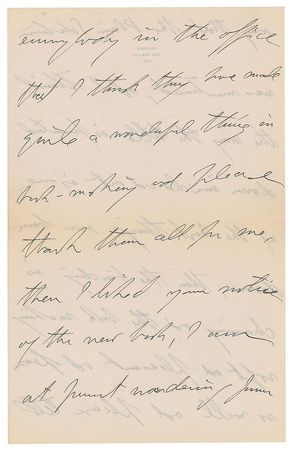 everybody in the office
that I think they have made
quite a wonderful thing in
book-making and please
thank them all for me
then I liked your notice
of the new book, I am
at present wandering from